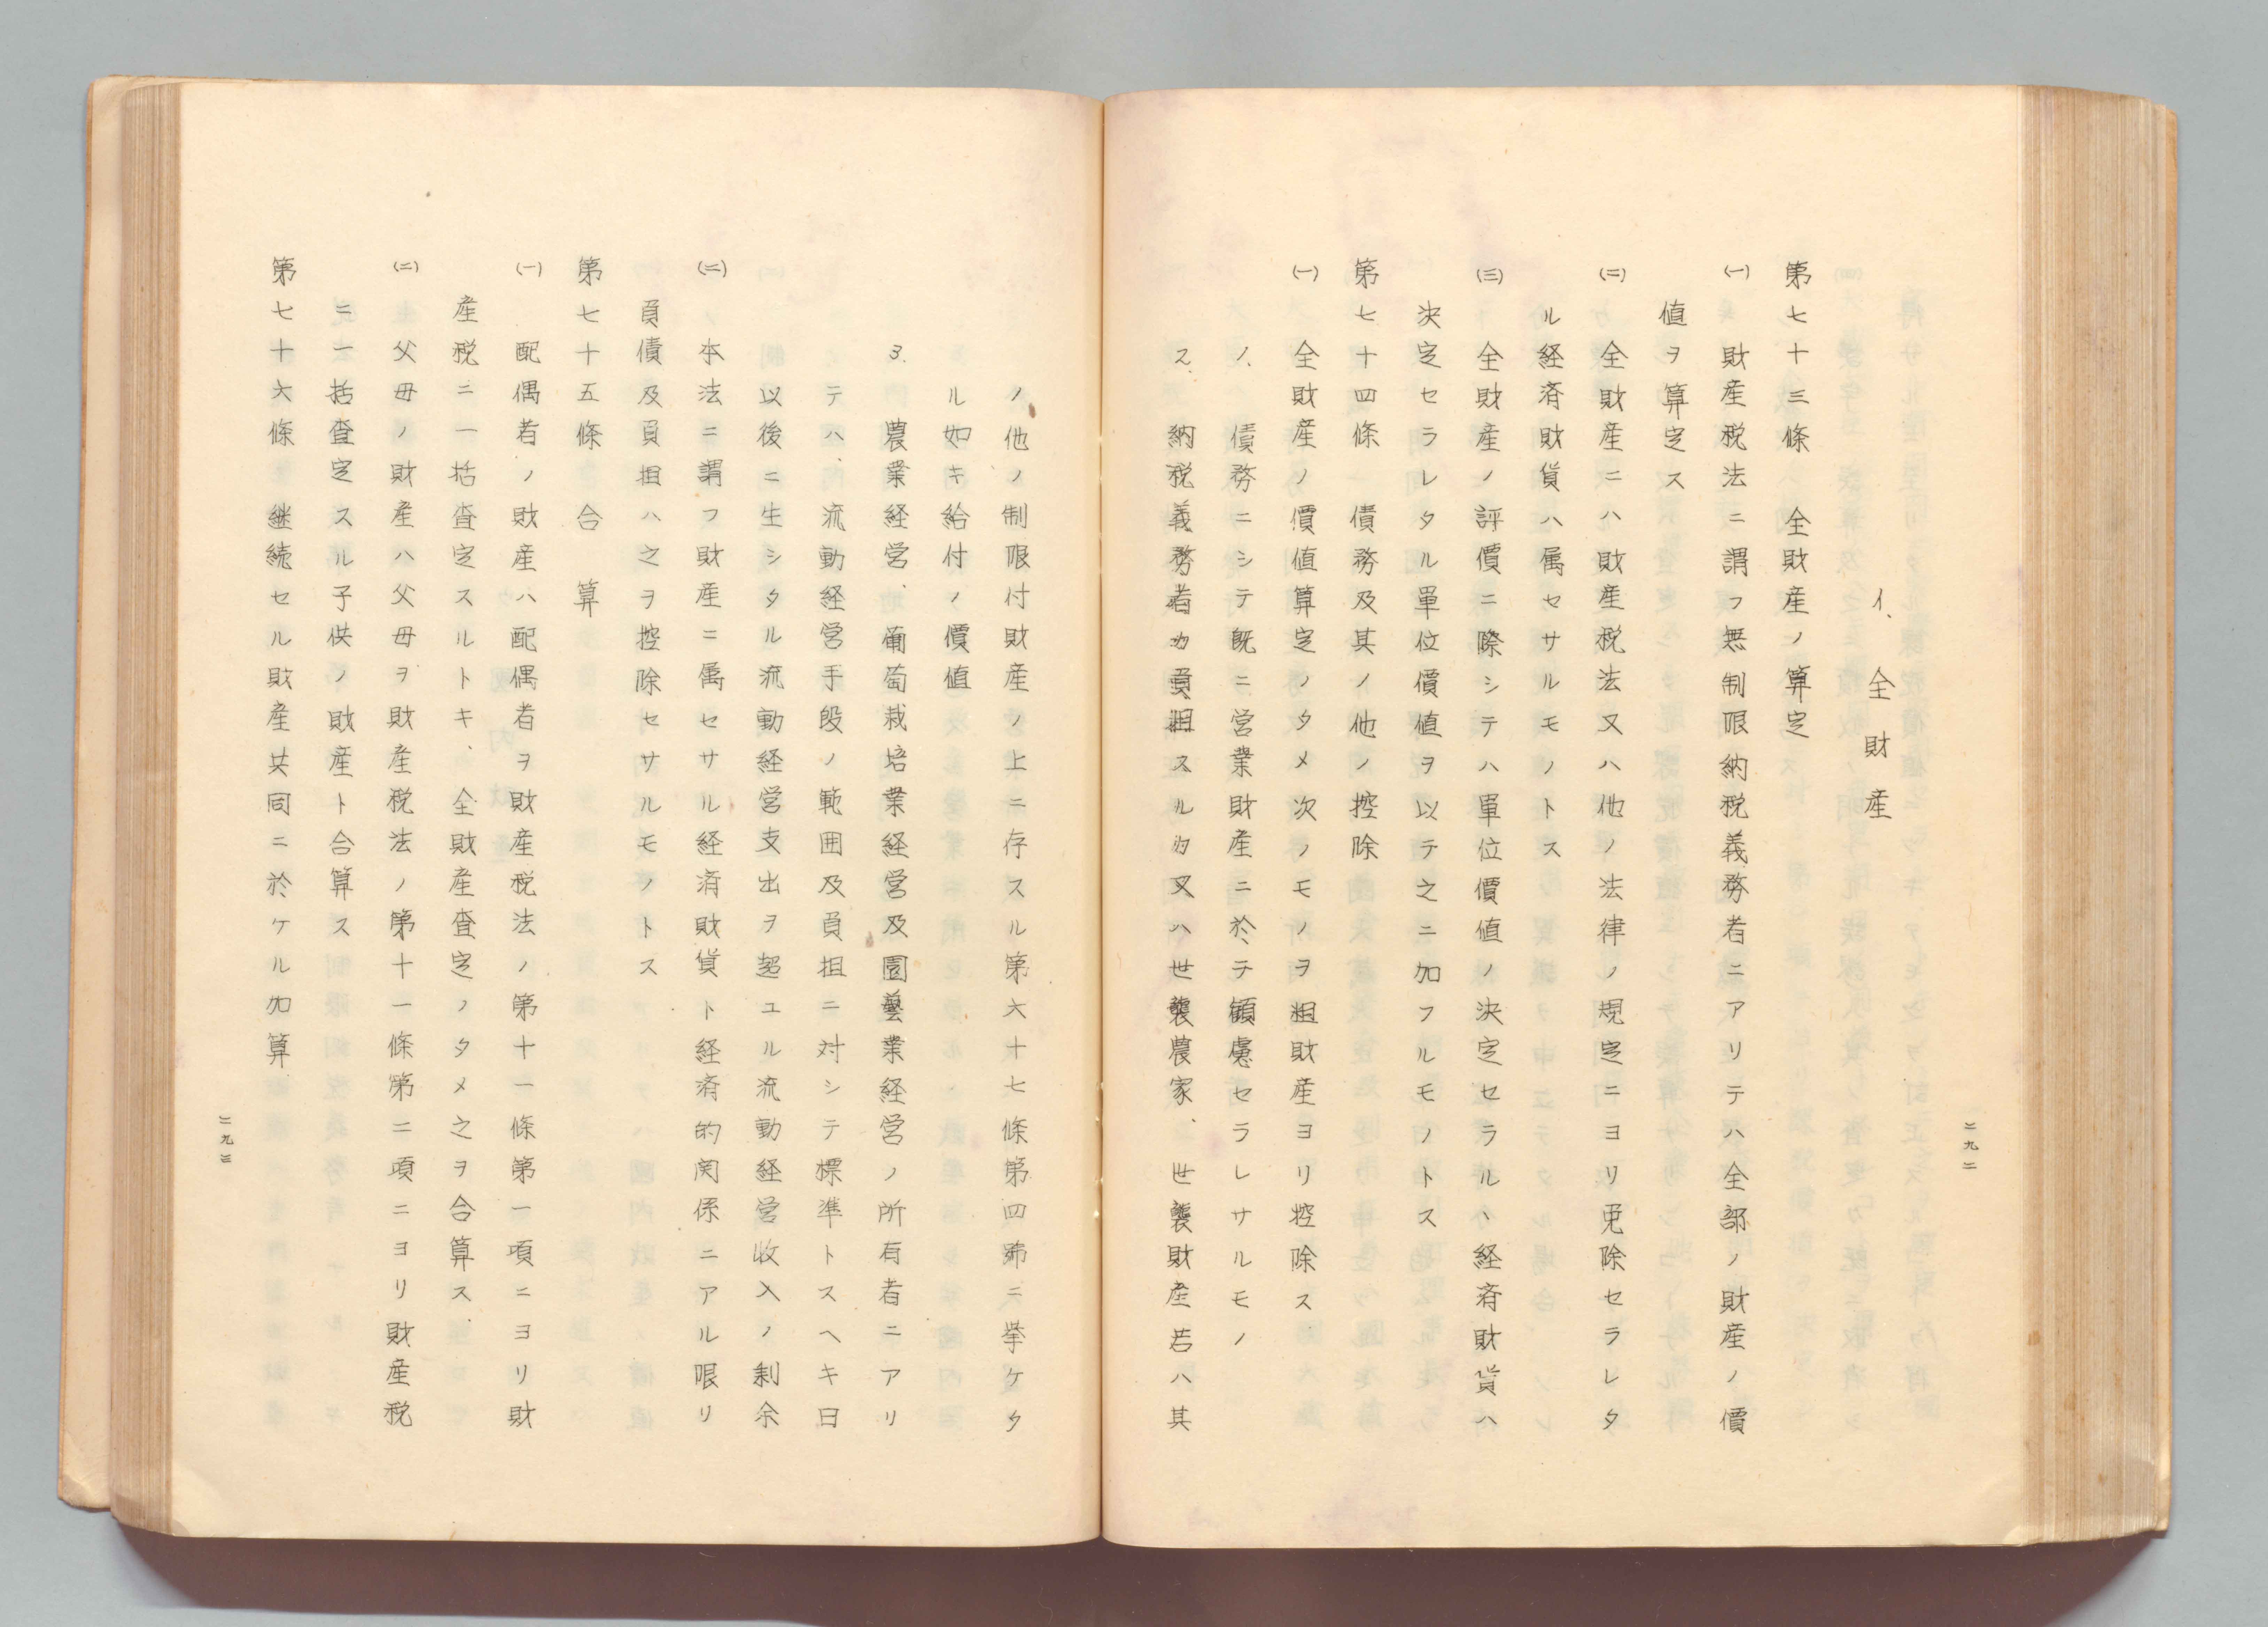 イ、全財産
第七十三條 全財産ノ算定
(一) 財産税法ニ謂フ無制限納税義務者ニアリテハ全部ノ財産ノ價
値ヲ算定ス
(二) 全財産ニハ財産税法又ハ他ノ法律ノ規定ニヨリ免除セラレタ
ル経済財貨ハ属セサルモノトス
(三) 全財産ノ評價ニ際シテハ單位價値ノ決定セラル、経済財貨ハ
決定セラレタル單位價値ヲ以テ之ニ加フルモノトス
第七十四條 債務及其ノ他ノ控除
(一) 全財産ノ價値算定ノタメ次ノモノヲ粗財産ヨリ控除ス
1. 債務ニシテ既ニ営業財産ニ於テ顧慮セラレサルモノ
2. 納税義務者カ負担スルカ又ハ世襲農家、世襲財産若ハ其
二九二
ノ他ノ制限付財産ノ上ニ存スル第六十七條第四號ニ挙ケタ
ル如キ給付ノ價値
3. 農業経営、葡萄栽培業経営及園藝業経営ノ所有者ニアリ
テハ、流動経営手段ノ範囲及負担ニ対シテ標準トスヘキ日
以後ニ生シタル流動経営支出ヲ超ユル流動経営收入ノ剰余
(二) 本法ニ謂フ財産ニ属セサル経済財貨ト経済的関係ニアル限リ
負債及負担ハ之ヲ控除セサルモノトス
第七十五條 合算
(一) 配偶者ノ財産ハ配偶者ヲ財産税法ノ第十一條第一項ニヨリ財
産税ニ一括査定スルトキ、全財産査定ノタメ之ヲ合算ス
(二) 父母ノ財産ハ父母ヲ財産税法ノ第十一條第二項ニヨリ財産税
ニ一括査定スル子供ノ財産ト合算ス
第七十六條 継続セル財産共同ニ於ケル加算
二九三